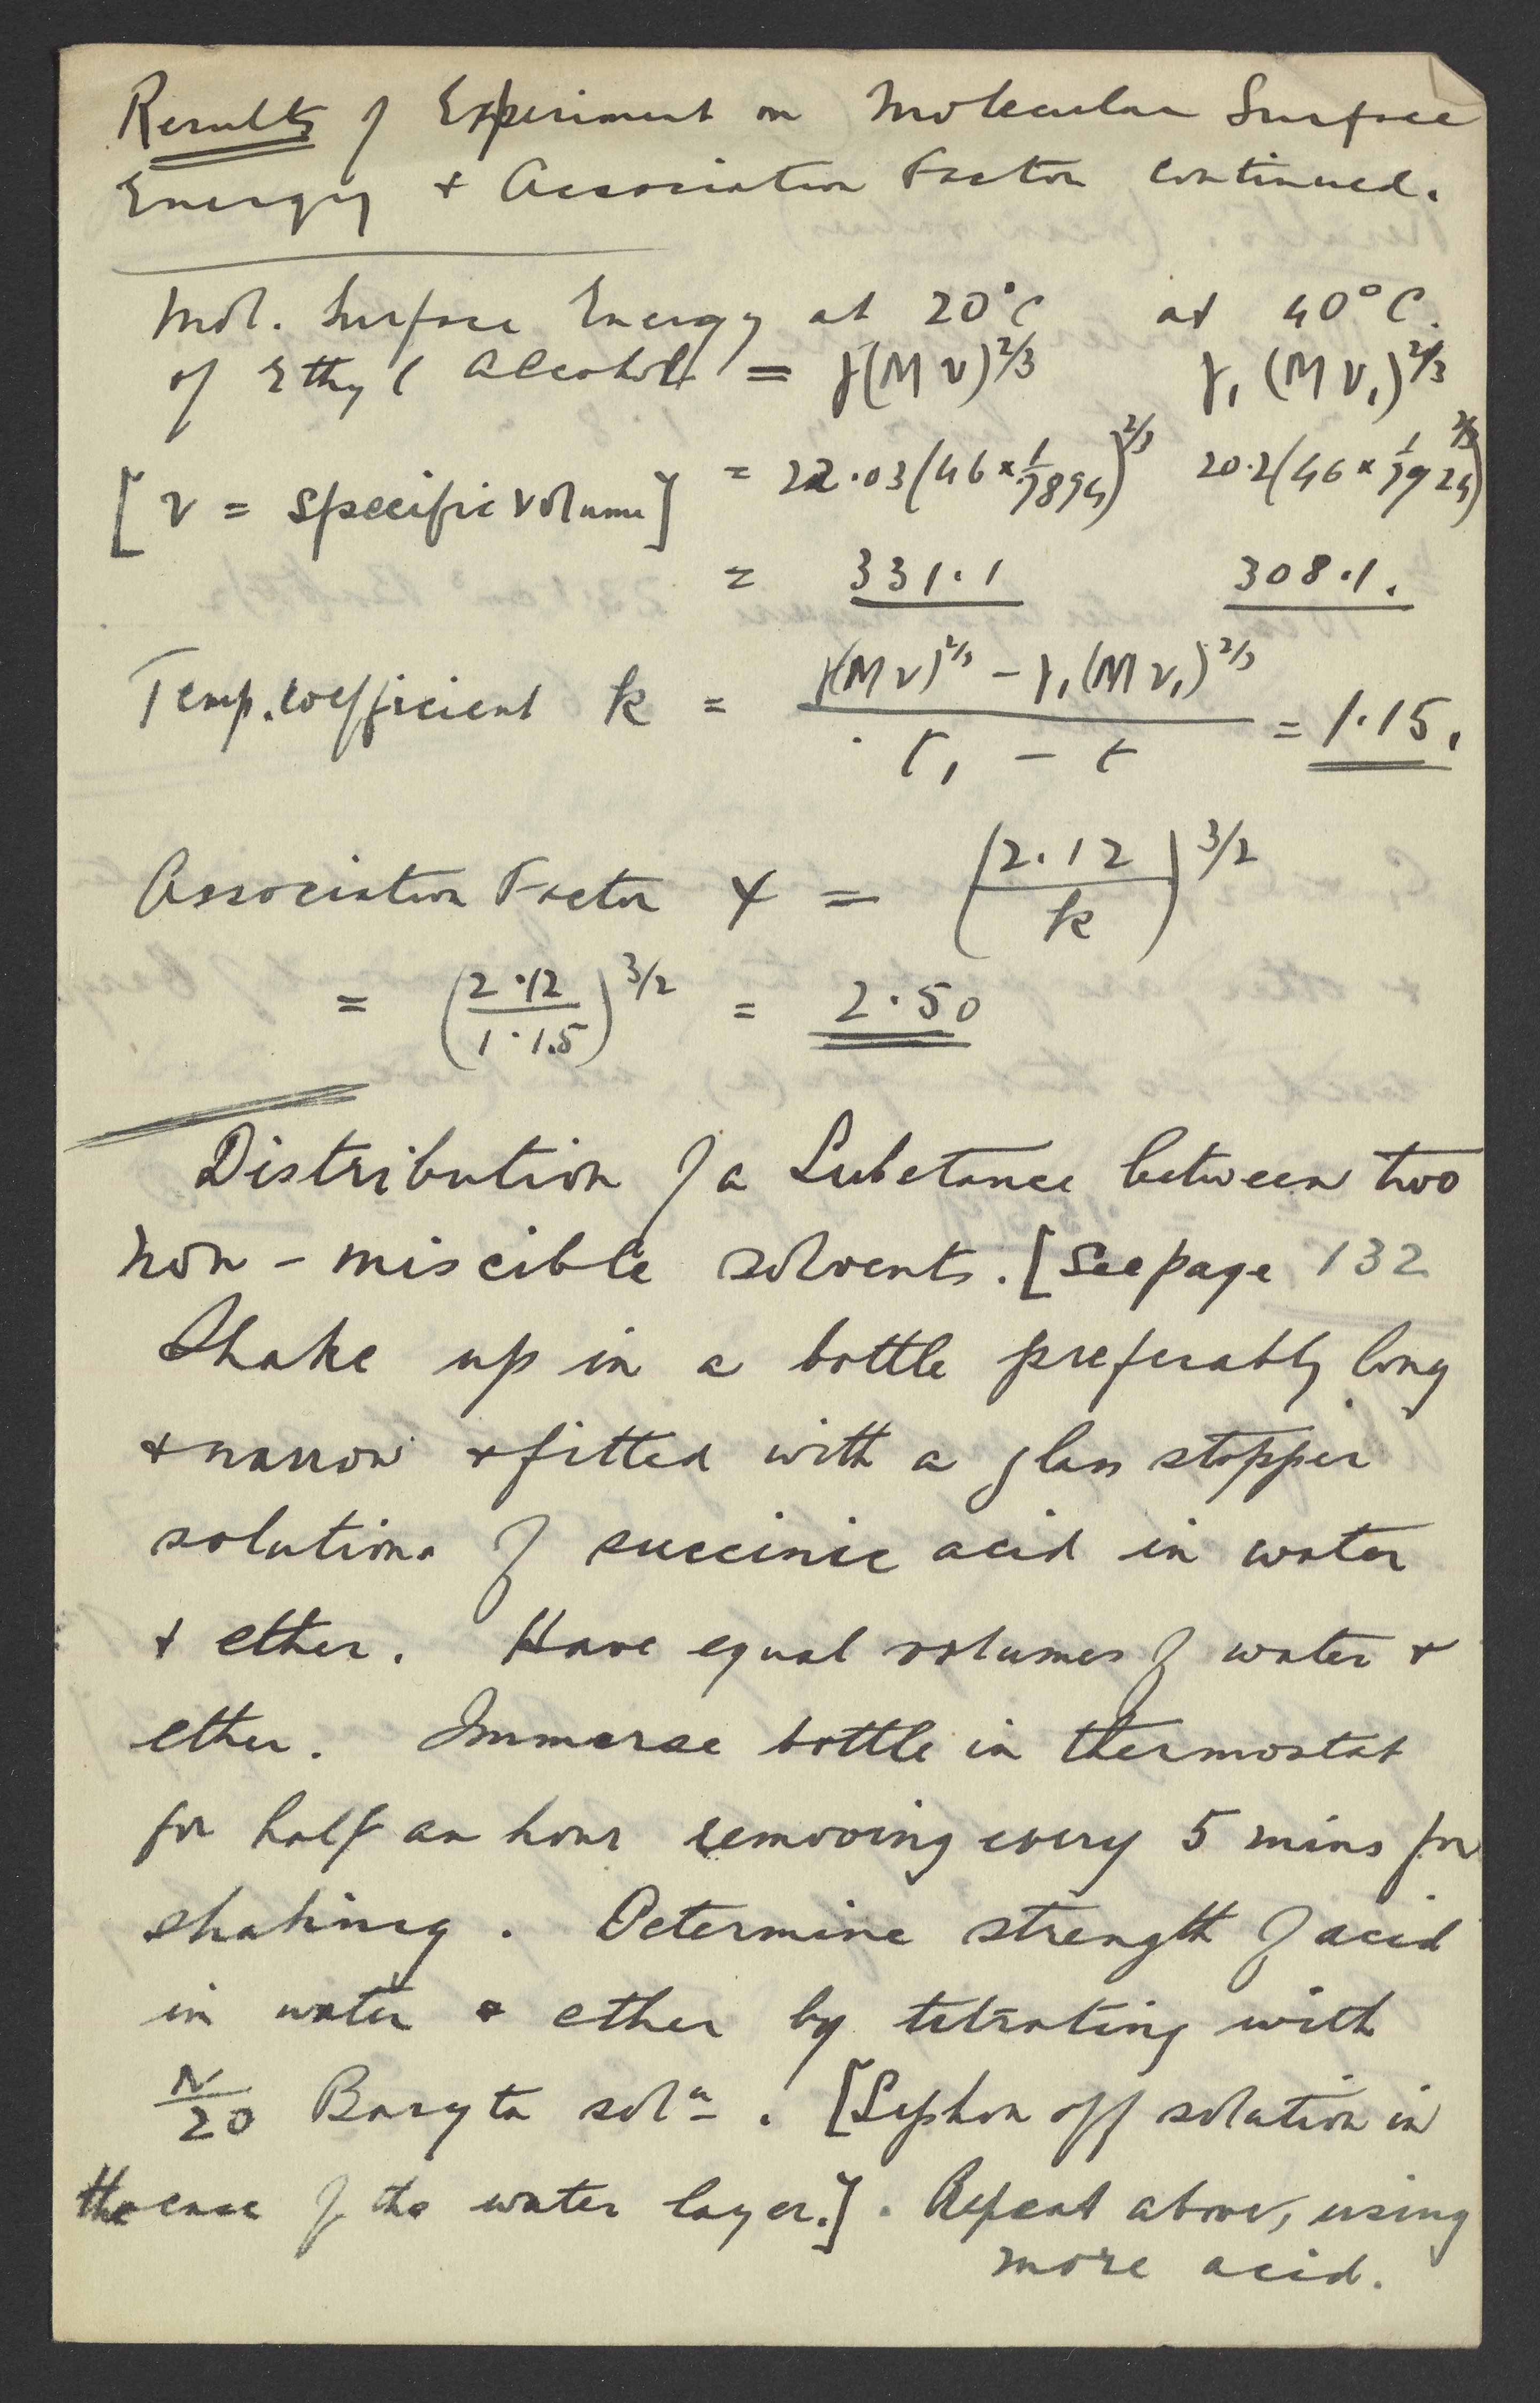 Results of Experiment on Molecular Surface
Energy + Association Factor continued.
Mol. Surface Energy at 20°C at 40°C.
of Ethyl Alcohol = γ(Mv)^2/3 γ₁(Mv₁)^2/3
[v = specific volume] = 22.03(46 × 1/.7894)^2/3 20.2(46 × 1/.7924)^2/3
= 331.1 308.1.
Temp. coefficient k = γ(Mv)^2/3 − γ₁(Mv₁)^2/3 / t₁ − t = 1.15.
Association Factor x = (2.12/k)^3/2
= (2.12/1.15)^3/2 = 2.50
Distribution of a Substance between two
non-miscible solvents. [See page 132
Shake up in a bottle preferably long
+ narrow + fitted with a glass stopper
solutions of succinic acid in water
+ ether. Have equal volumes of water +
ether. Immerse bottle in thermostat
for half an hour removing every 5 mins for
shaking. Determine strength of acid
in water + ether by titrating with
N/20 Baryta solⁿ. [Syphon off solution in
the case of the water layer.]. Repeat above, using
more acid.